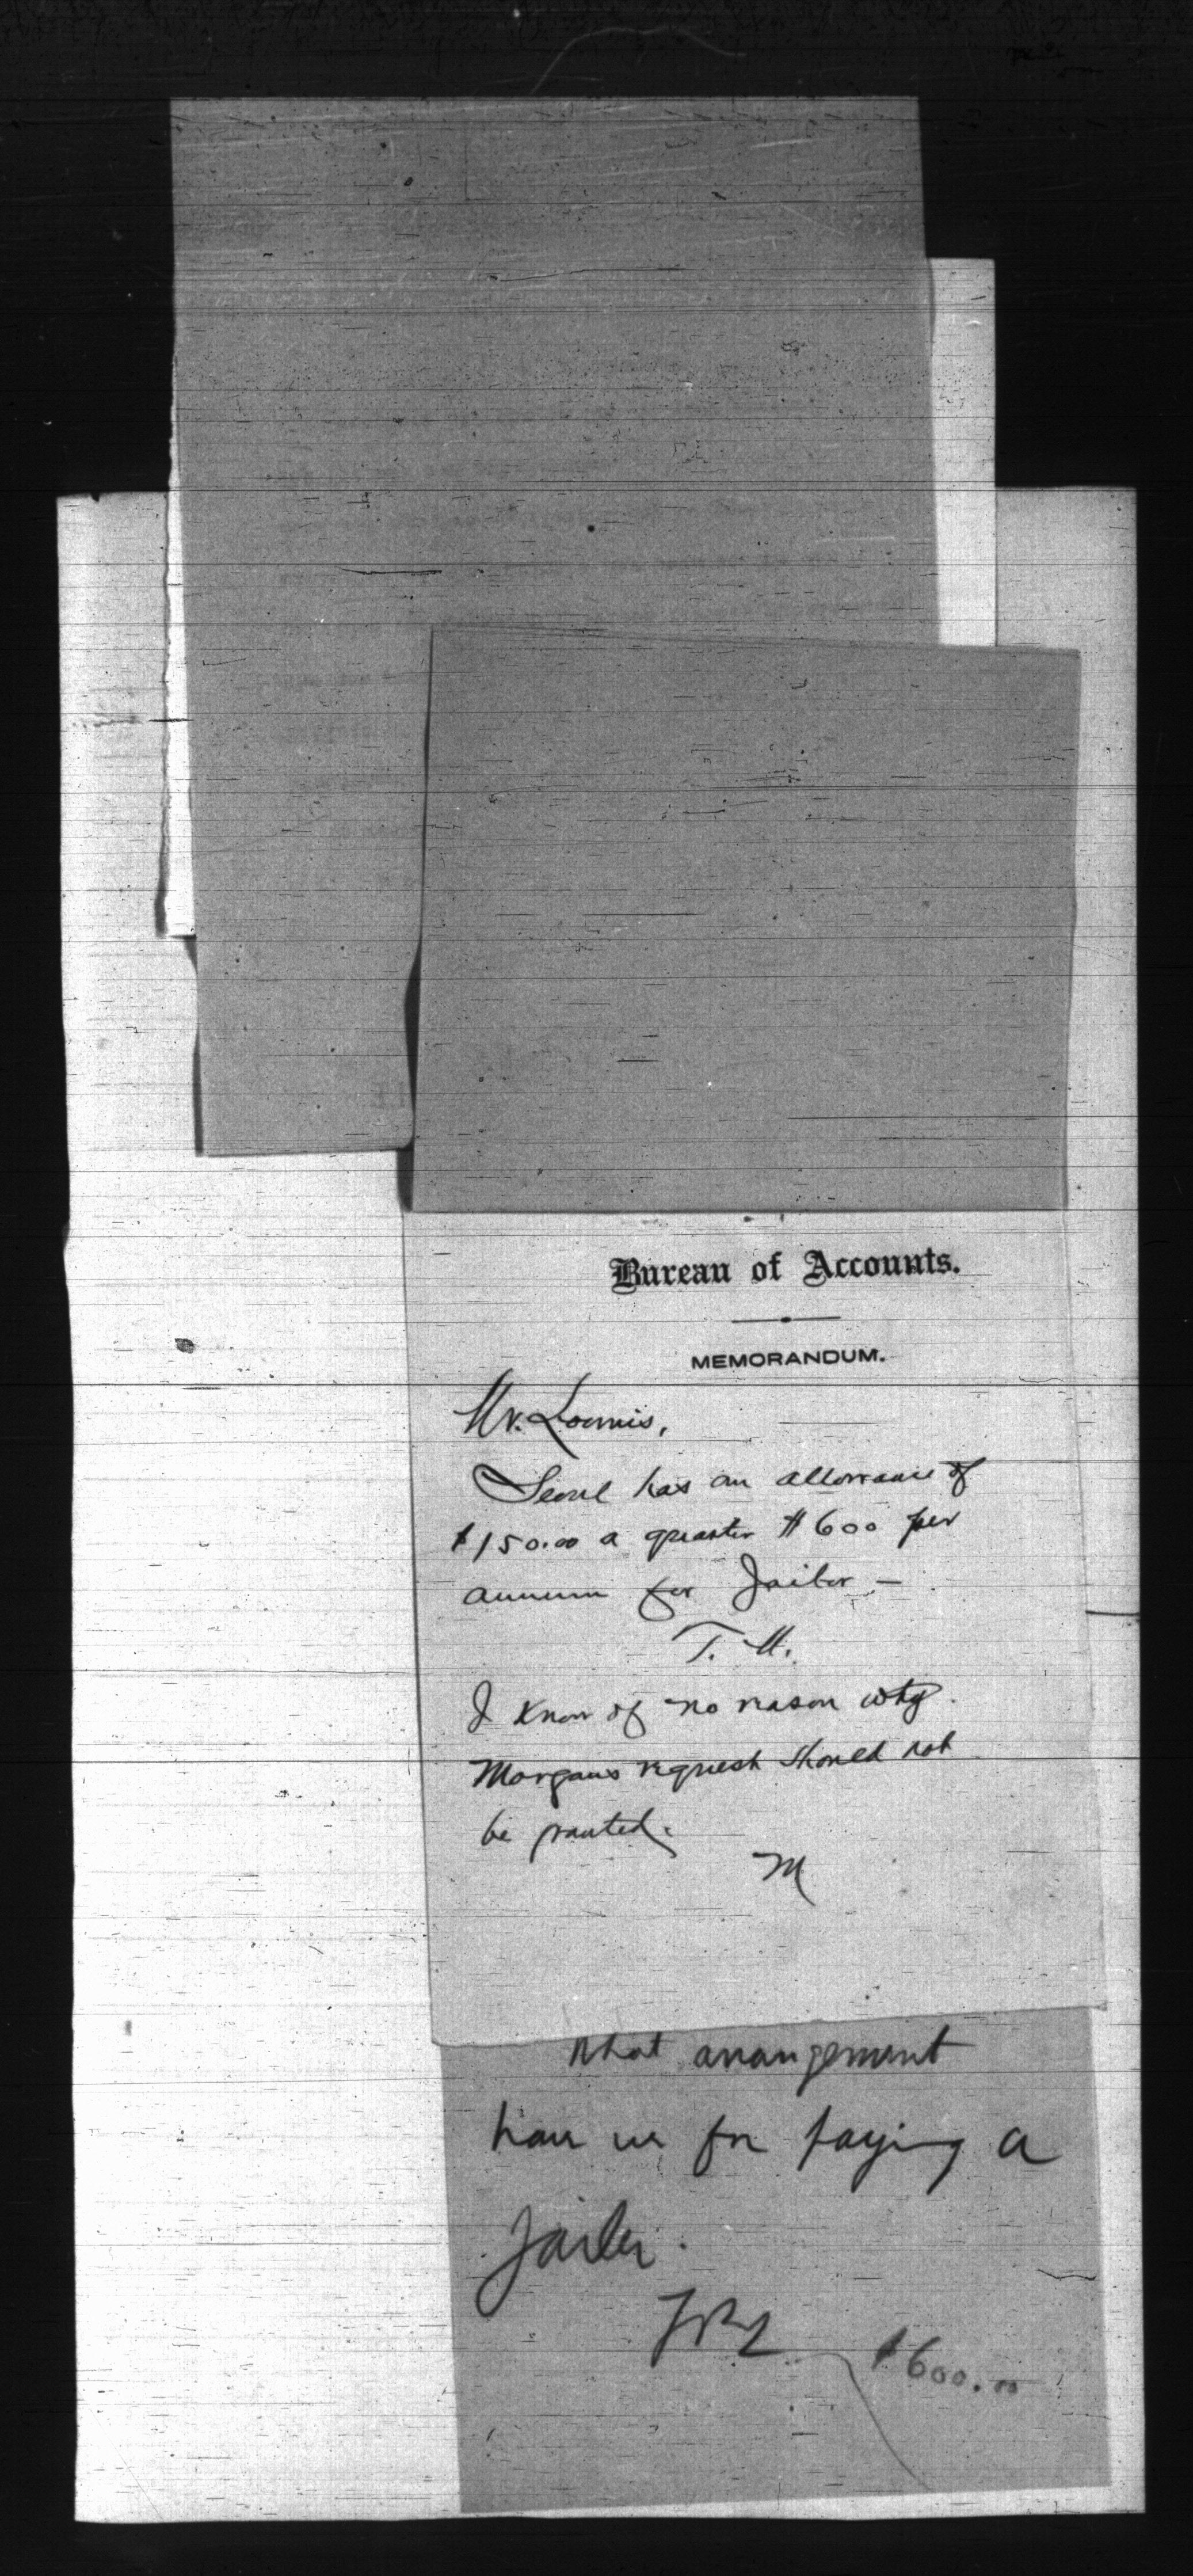 Bureau of Accounts.
MEMORANDUM.
Mr. Loomis,
Seoul has an allowance of
$150.00 a quarter $600 per
annum for Jailor —
T. M.
I know of no reason why
Morgans request should not
be granted.
M
What arrangement
have we for paying a
jailer.
$600.00